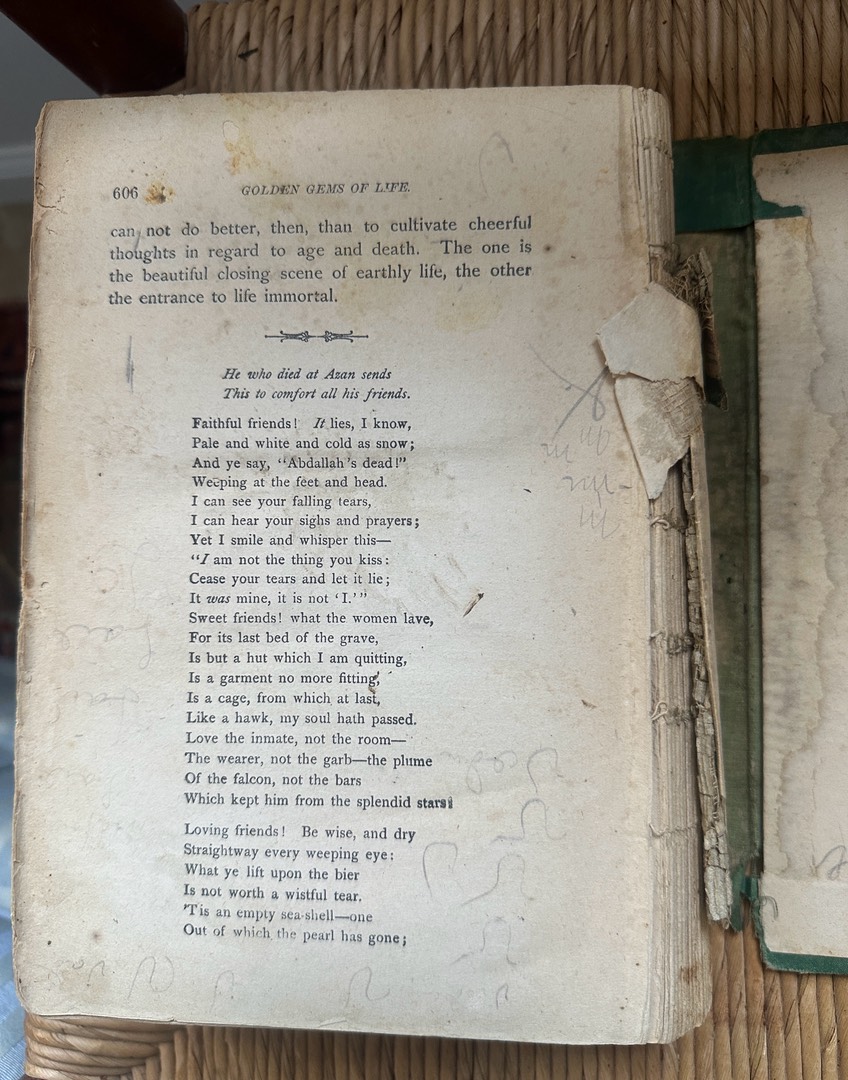 606
GOLDEN GEMS OF LIFE.
can not do better, then, than to cultivate cheerful
thoughts in regard to age and death. The one is
the beautiful closing scene of earthly life, the other
the entrance to life immortal.
He who died at Azan sends
This to comfort all his friends.
Faithful friends! It lies, I know,
Pale and white and cold as snow;
And ye say, "Abdallah's dead!"
Weeping at the feet and head.
I can see your falling tears,
I can hear your sighs and prayers;
Yet I smile and whisper this—
"I am not the thing you kiss:
Cease your tears and let it lie;
It was mine, it is not 'I.'"
Sweet friends! what the women lave,
For its last bed of the grave,
Is but a hut which I am quitting,
Is a garment no more fitting,
Is a cage, from which at last,
Like a hawk, my soul hath passed.
Love the inmate, not the room—
The wearer, not the garb—the plume
Of the falcon, not the bars
Which kept him from the splendid stars!
Loving friends! Be wise, and dry
Straightway every weeping eye:
What ye lift upon the bier
Is not worth a wistful tear.
'Tis an empty sea-shell—one
Out of which the pearl has gone;